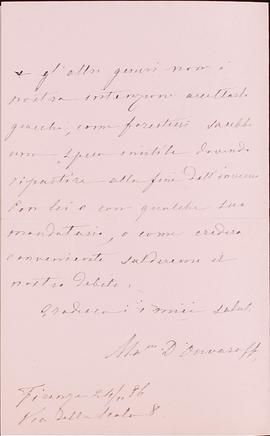 e gl'altri generi non è
nostra intenzione accettarli
giacchè, come forestieri sarebbe
una spesa inutile dovendo
ripartire alla fine dell'inverno
Con lei o con qualche suo
mandatario, o come crederà
conveniente salderemo il
nostro debito.
Gradisca i miei saluti
D'Ouvaroff
Firenze 24/11 86
Via della Scala 8.